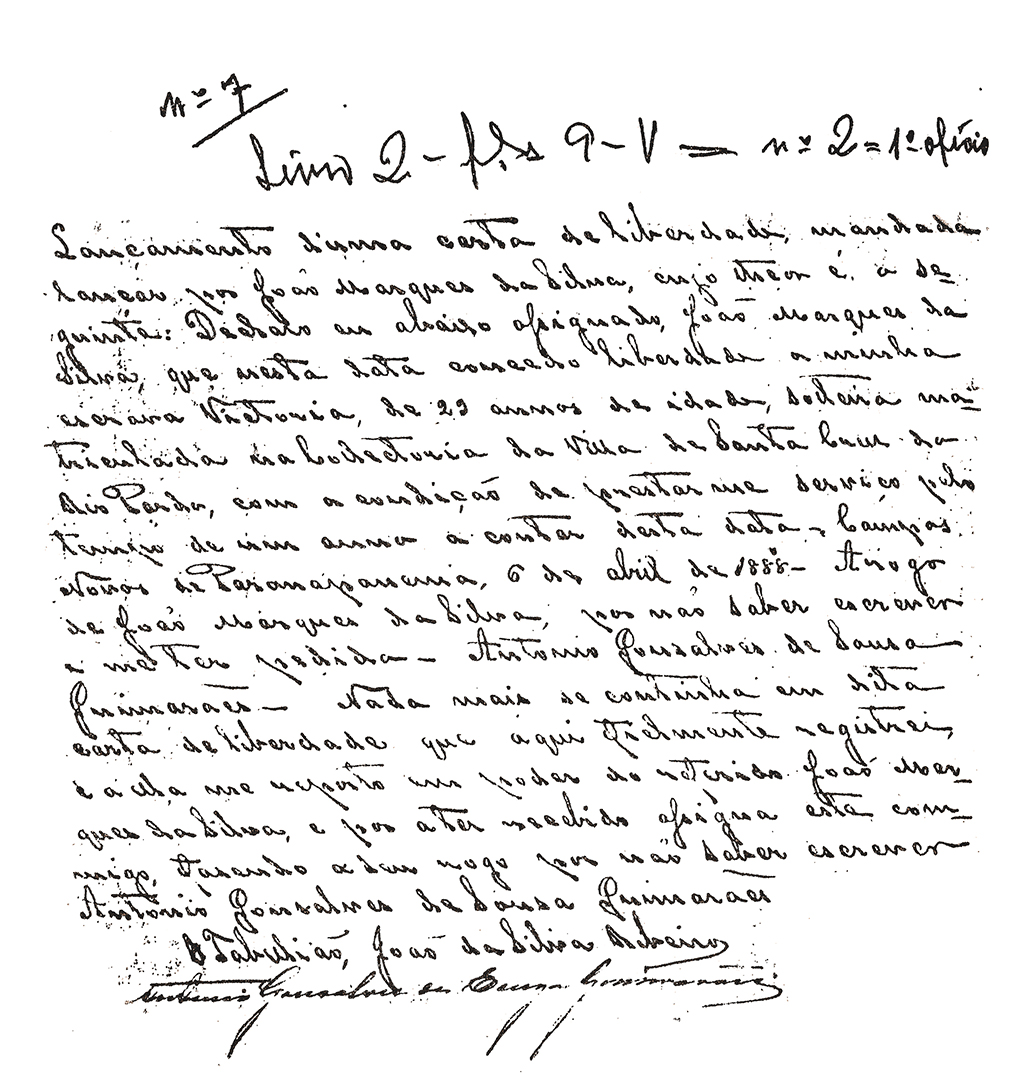 nº 7
Livro 2 - fls 9-V = nº 2 = 1º ofício
Lançamento duma carta de liberdade, mandada
lançar por João Marques da Silva, cujo theor é a se-
guinte: Declaro eu abaixo assignado, João Marques da
Silva, que nesta data concedo liberdade a minha
escrava Victoria, de 29 annos de idade, solteira ma-
triculada na Collectoria da Villa de Santa Cruz do
Rio Pardo, com a condição de prestar me serviço pelo
tempo de um anno a contar desta data. Campos
Novos de Paranapanema, 6 de abril de 1888 - A rogo
de João Marques da Silva, por não saber escrever
e me ter pedido - Antonio Gonsalves de Sousa
Guimarães - Nada mais se continha em dita
carta de liberdade que aqui fielmente registrei,
e a ella me reporto em poder do referido João Mar-
ques da Silva, e por a ter recebido assigna este com-
migo, fasendo a seu rogo por não saber escrever
Antonio Gonsalves de Sousa Guimarães
O Tabelião, João da Silva Ribeiro
Antonio Gonsalves de Souza Guimarães